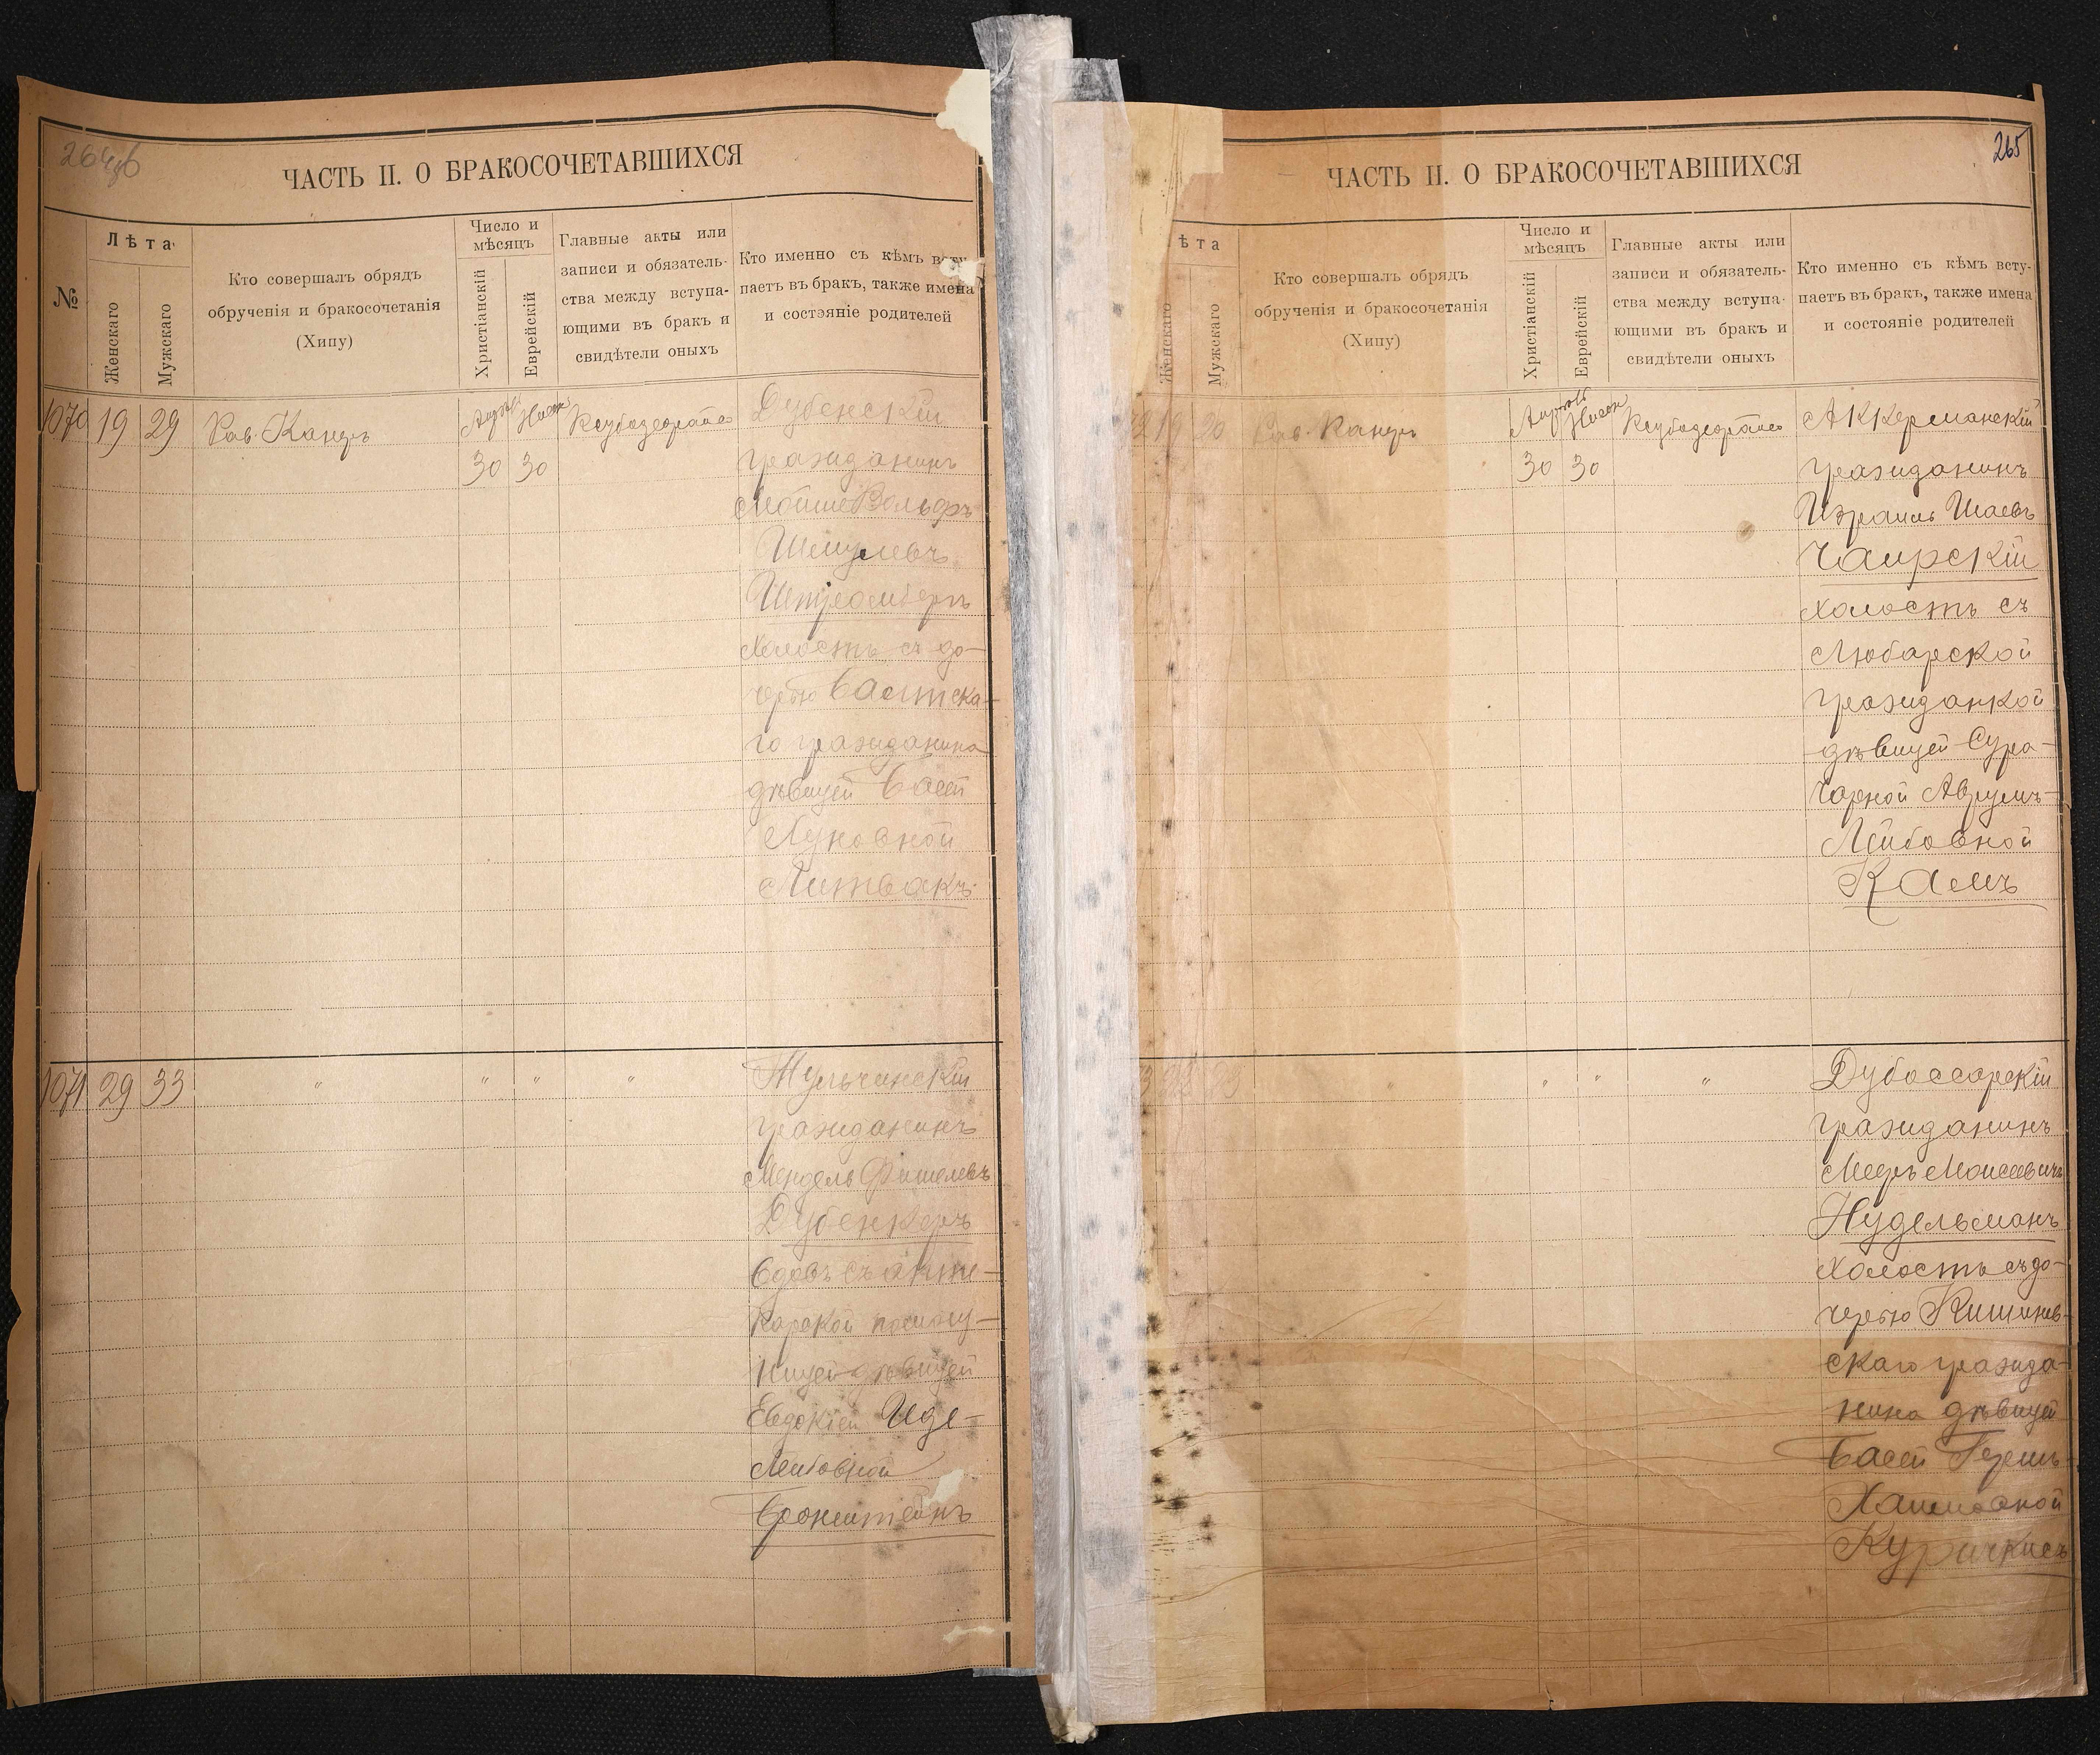 264об
ЧАСТЬ II. О БРАКОСОЧЕТАВШИХСЯ
№
Лѣта
Женскаго
Мужскаго
Кто совершалъ обрядъ
обрученія и бракосочетанія
(Хипу)
Число и
мѣсяцъ
Христіанскій
Еврейскій
Главные акты или
записи и обязатель-
ства между вступа-
ющими въ бракъ и
свидѣтели оныхъ
Кто именно съ кѣмъ всту
паетъ въ бракъ, также имена
и состояніе родителей
1070 19 29 Рав. Канцъ
30 30
Дубенскій
гражданинъ
Лейбишъ Вольфъ
Шмулевъ
Штромбергъ
холостъ съ до-
черью Балтска-
го гражданина
дѣвицей Басей
Нуховной
Литвакъ
1071 29 33 " " " "
Тульчинскій
гражданинъ
Мендель Фишелевъ
Дубенкеръ
вдовъ съ
дѣвицей
Иде-
Лейбовной
Бронштейнъ
265
ЧАСТЬ II. О БРАКОСОЧЕТАВШИХСЯ
ѣта
Женскаго
Мужскаго
Кто совершалъ обрядъ
обрученія и бракосочетанія
(Хипу)
Число и
мѣсяцъ
Христіанскій
Еврейскій
Главные акты или
записи и обязатель-
ства между вступа-
ющими въ бракъ и
свидѣтели оныхъ
Кто именно съ кѣмъ всту-
паетъ въ бракъ, также имена
и состояніе родителей
72 19 20 Рав. Канцъ
30 30
Аккерманскій
гражданинъ
Израиль Шаевъ
Чаирскій
холостъ съ
Любарской
гражданкой
дѣвицей Сура-
Чарной Аврумъ-
Лейбовной
Камъ
" " " "
Дубоссарскій
гражданинъ
Мееръ Моисеевичъ
Нудельманъ
холостъ съ до-
черью Кишинев-
скаго гражда-
нина дѣвицей
Басей Гершъ
Хаимовной